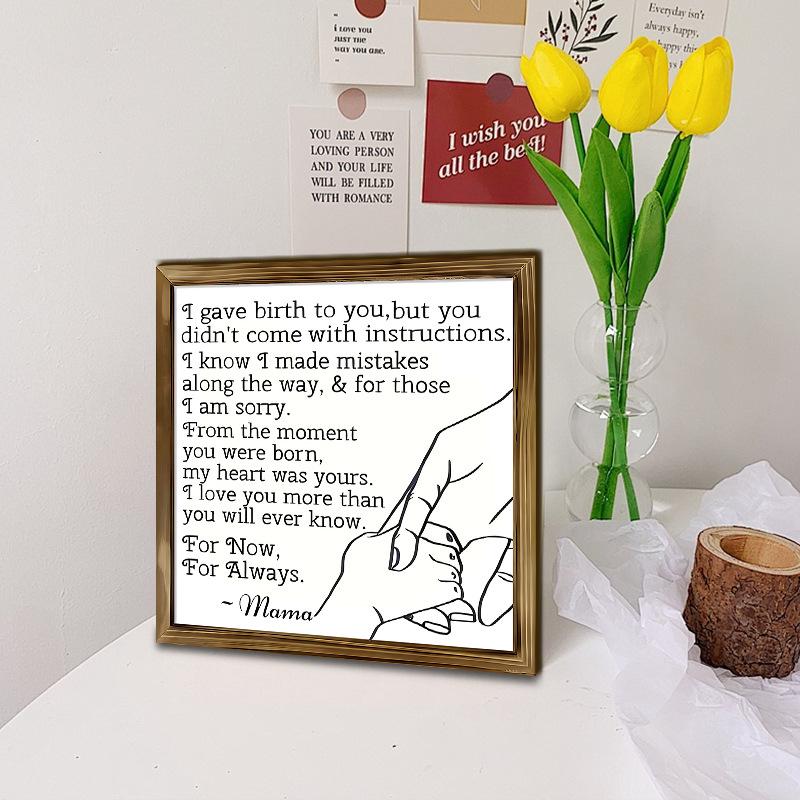 "
i love you
just the
way you are.
"
YOU ARE A VERY
LOVING PERSON
AND YOUR LIFE
WILL BE FILLED
WITH ROMANCE
I wish you
all the best!
Everyday isn't
always happy,
happy thi
I gave birth to you,but you
didn't come with instructions.
I know I made mistakes
along the way, & for those
I am sorry.
From the moment
you were born,
my heart was yours.
I love you more than
you will ever know.
For Now,
For Always.
~ Mama